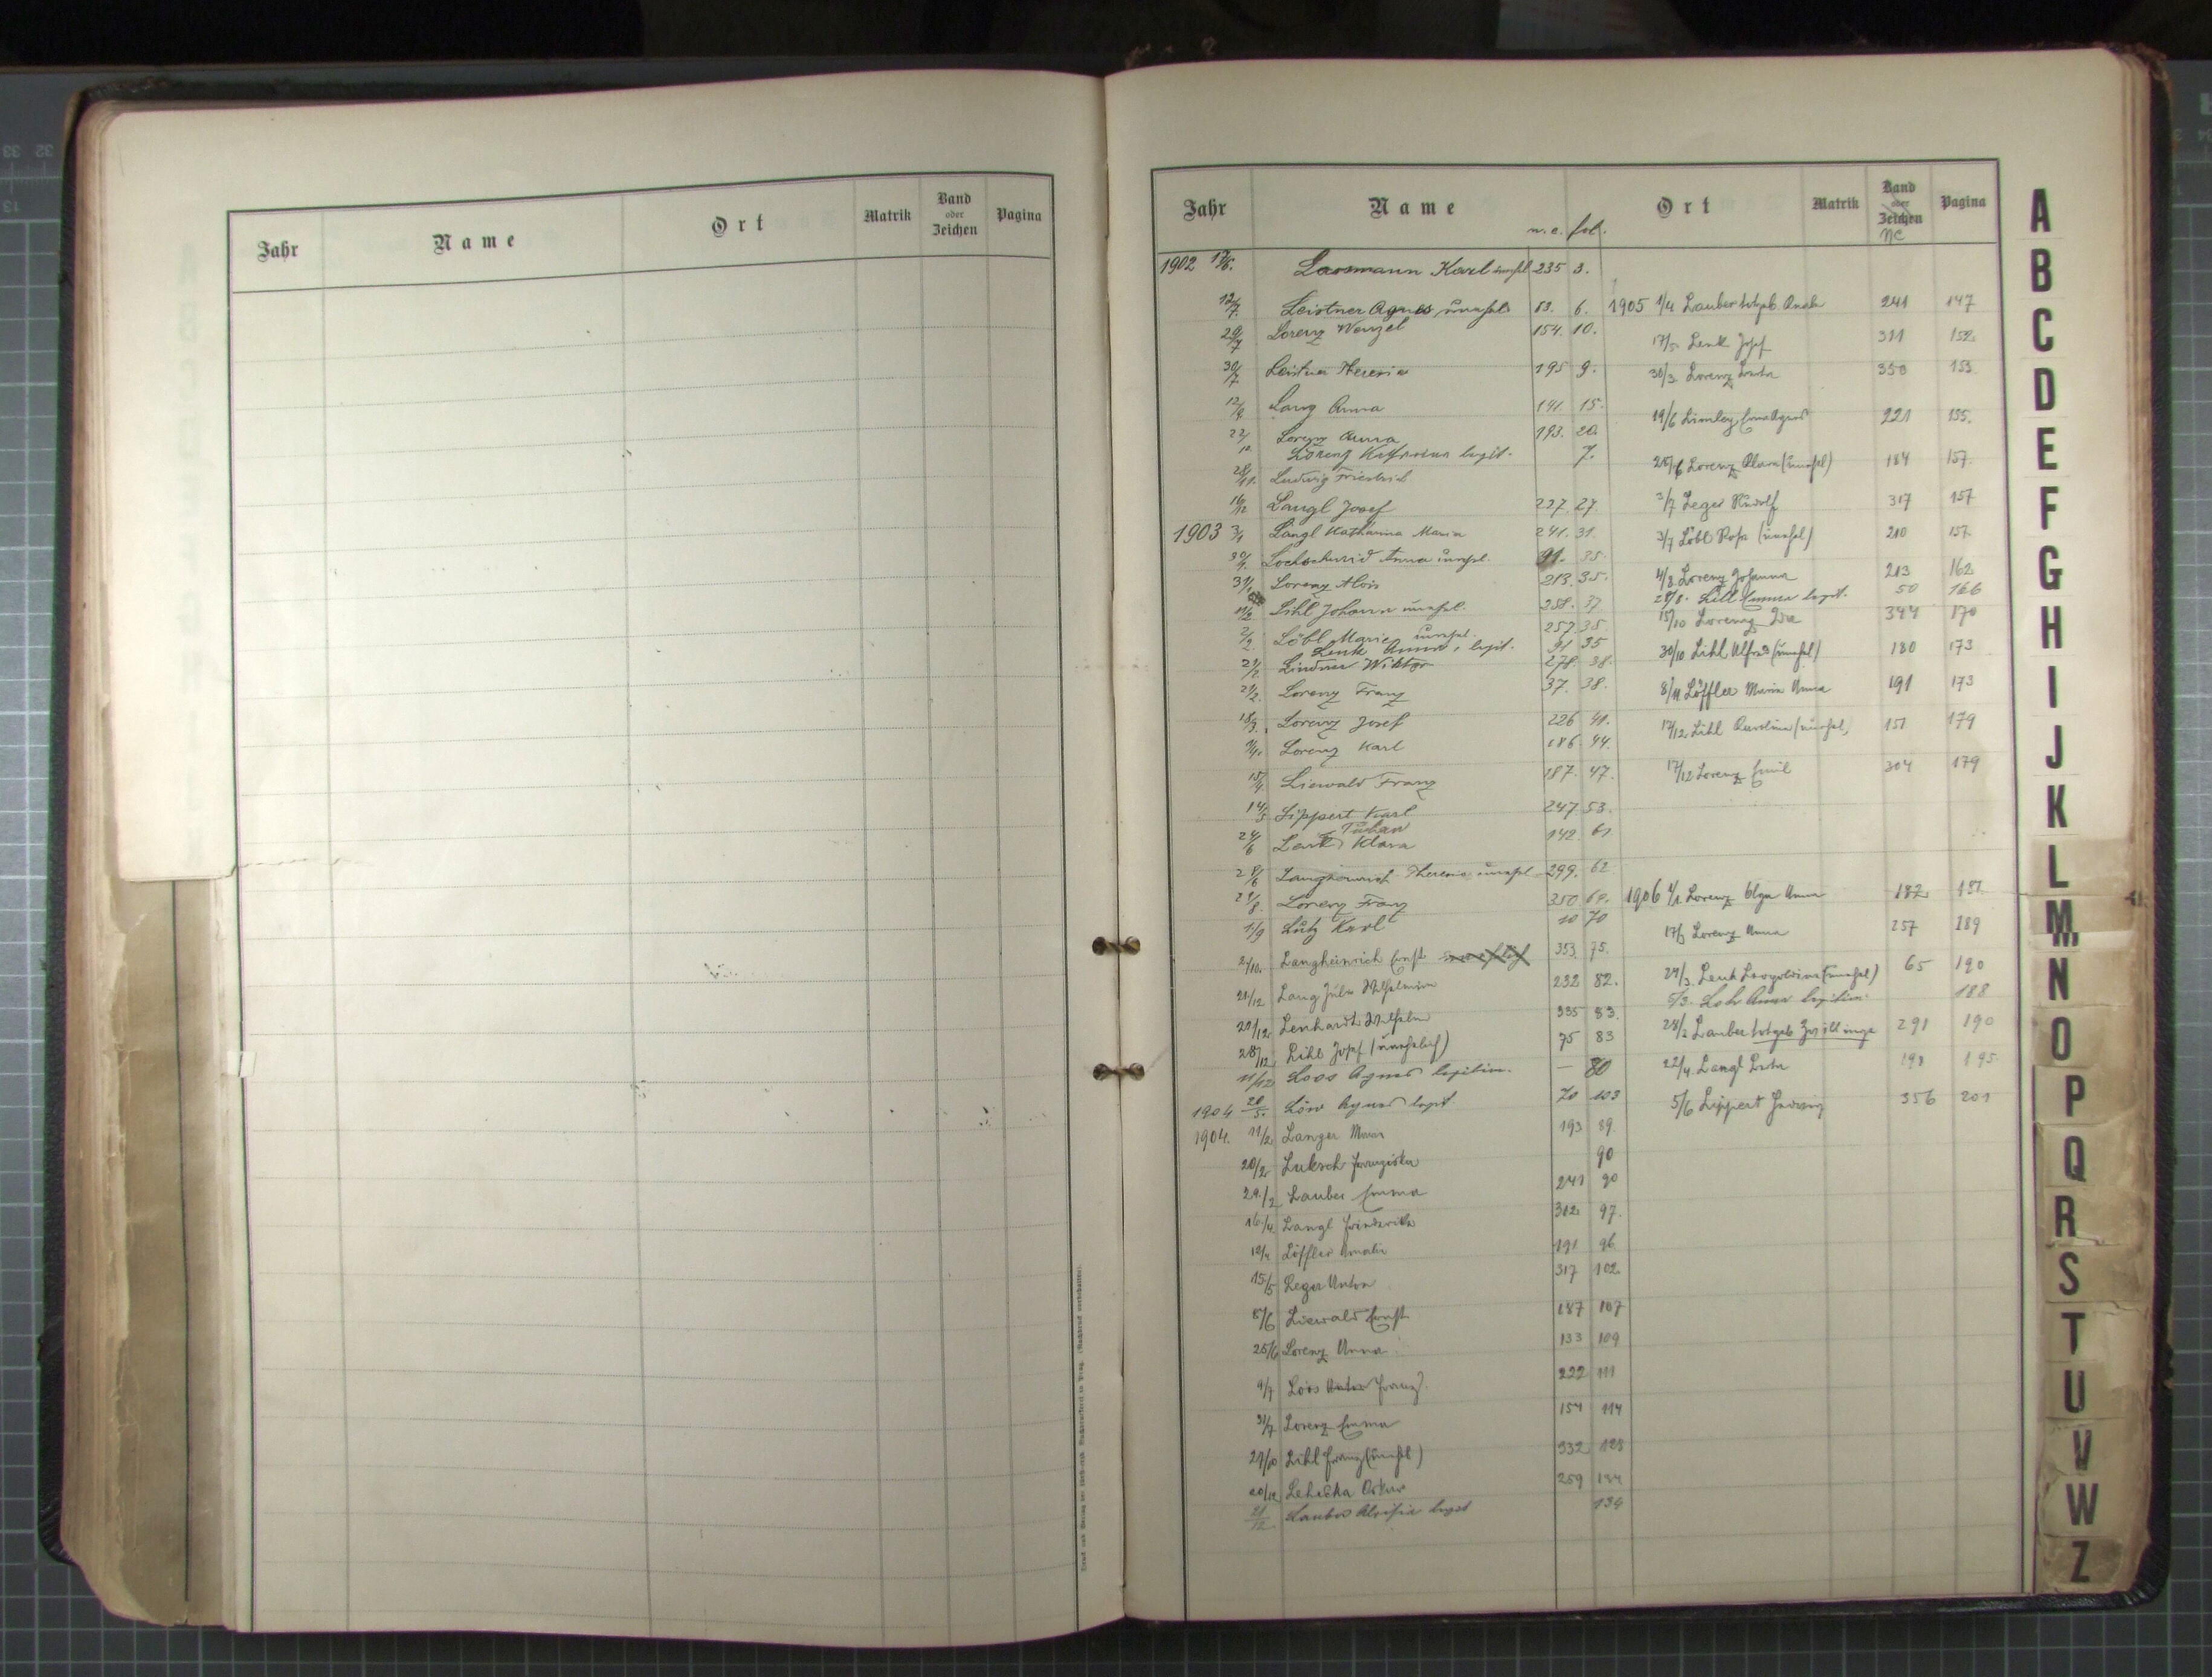 Jahr Name Ort Matrik Band oder Zeichen Pagina
Jahr Name Ort Matrik Band oder Zeichen Pagina
n.c. fol. NC
1902 17/6. Lassmann Karl unehl 235 3.
12/7. Leistner Agnes unehel. 63. 6.
29/7 Lorenz Wenzel 154. 10.
30/7 Leistner Theresia 195 9.
12/9. Lang Anna 141. 15.
22/10 Lorenz Anna 193. 20.
Lorenz Katharina legit. 7.
28/11. Ludwig Friedrich
16/12 Langl Josef 227. 27.
1903 3/1 Langl Katharina Maria 241. 31.
Lochschmid Anna unehel. 91. 35.
31/1 Lorenz Alois 213. 35.
Lihl Johann unehel. 258. 37
2/2. Löbl Marie unehel. 257 35.
Lenk Anna, legit. 91 35
21/2. Lindner Wiktor 278. 38.
21/2. Lorenz Franz 37. 38.
18/3. Lorenz Josef 226 41.
Lorenz Karl 186. 44.
15/4 Liewald Franz 187. 47.
14/5 Lippert Karl 247. 53.
24/6 Lenk Klara 142. 61
28/6 Langheinrich Theresia unehel 299. 62
Lorenz Franz 350 69.
1/9 Lutz Karl 10 70
2/10. Langheinrich Ernst 353. 75.
21/12 Lang Julie Wilhelmine 232 82.
20/12. Lenhardt Wilhelm 335 83.
28/12. Lihl Josef (unehelich) 75 83
11/12 Loos Agnes legitim. — 80
1904 20/5. Löw Agnes legit 70 103
1904. 11/2 Langer Maria 193 89.
20/2. Luksch Franziska 90
29./2 Lauber Emma 241 90
16./4 Langl Friederike 312 97.
12/4 Löffler Amalie 191 96
15/5 Leger Anton 317 102.
5/6 Liewald Ernst 187 107
25/6 Lorenz Anna 133 109
4/7 Loos Anton Franz 222 111
31/7 Lorenz Emma 154 114
27/10 Lihl Franz (unehel) 332 128
20/12 Lehatka Oskar 259 134
21/12 Lauber Aloisia legit 134
1905 1/4 Lauber totgeb. Knabe 241 147
17/5. Lenk Josef 311 152.
30/3. Lorenz Berta 350 153.
19/6 221 155.
25/6 Lorenz Klara (unehel) 184 157.
2/7 Leger Rudolf 317 157
3/7 Löbl Rosa (unehel) 210 157.
4/8. Lorenz Johanna 213 162
28/8. Lill Emma legit. 50 166
15/10 Lorenz Ida 344 170
30/10 Lihl Alfred (unehel) 180 173
8/11 Löffler Maria Anna 191 173
17/12. Lihl Karolina (unehel) 151 179
17/12 Lorenz Emil 304 179
1906 4/1 Lorenz Olga Anna 182 181.
17/3 Lorenz Anna 257 189
24/3. Lenk Leopoldine (unehel) 65 190
5/3. Lohr Anna legitim. 188
28/2 Lauber totgeb Zwillinge 291 190
22/4. Langl Berta 198 195.
5/6 Lippert Hedwig 356 201
A
B
C
D
E
F
G
H
I
J
K
L
M
N
O
P
Q
R
S
T
U
V
W
Z